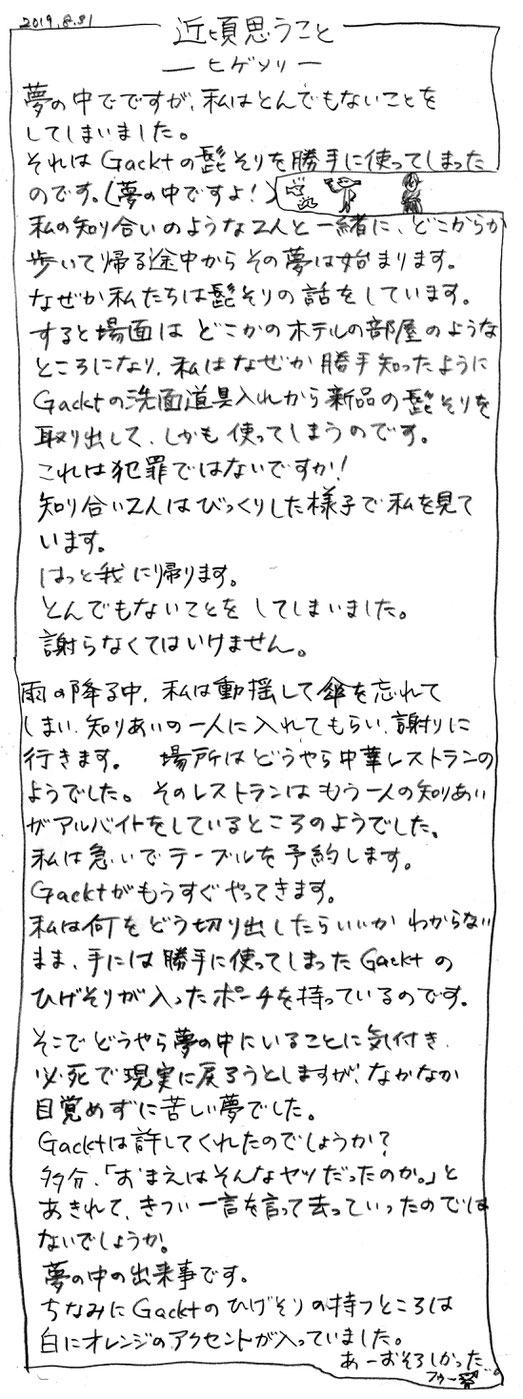 2019.8.31
近頃思うこと
ーヒゲソリー
夢の中でですが、私はとんでもないことを
してしまいました。
それはGacktの髭そりを勝手に使ってしまった
のです。(夢の中ですよ!)
私の知り合いのような2人と一緒に、どこからか
歩いて帰る途中からその夢は始まります。
なぜか私たちは髭そりの話をしています。
すると場面はどこかのホテルの部屋のような
ところになり、私はなぜか勝手知ったように
Gacktの洗面道具入れから新品の髭そりを
取り出して、しかも使ってしまうのです。
これは犯罪ではないですか!
知り合い2人はびっくりした様子で私を見て
います。
はっと我に帰ります。
とんでもないことをしてしまいました。
謝らなくてはいけません。
雨の降る中、私は動揺して傘を忘れて
しまい、知りあいの一人に入れてもらい、謝りに
行きます。 場所はどうやら中華レストランの
ようでした。そのレストランはもう一人の知りあい
がアルバイトをしているところのようでした。
私は急いでテーブルを予約します。
Gacktがもうすぐやってきます。
私は何をどう切り出したらいいかわからない
まま、手には勝手に使ってしまったGacktの
ひげそりが入ったポーチを持っているのです。
そこでどうやら夢の中にいることに気付き、
必死で現実に戻ろうとしますが、なかなか
目覚めずに苦しい夢でした。
Gacktは許してくれたのでしょうか?
多分、「おまえはそんなヤツだったのか。」と
あきれて、きつい一言を言って去っていったのでは
ないでしょうか。
夢の中の出来事です。
ちなみにGacktのひげそりの持つところは
白にオレンジのアクセントが入っていました。
あーおそろしかった